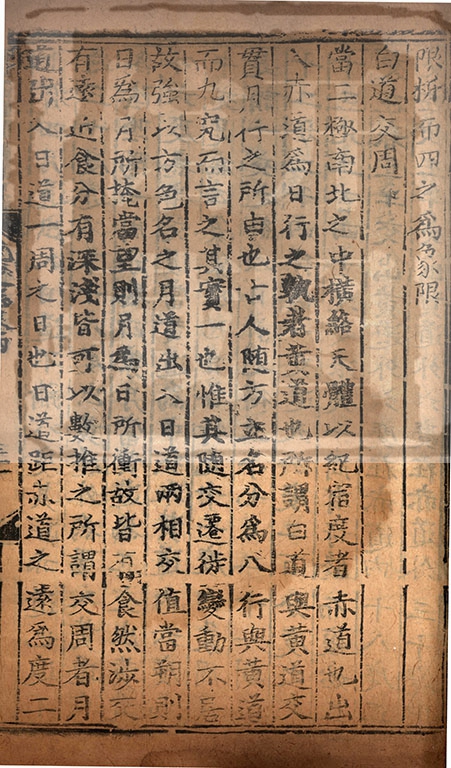 限析而四之爲象限
白道交周
當二極南北之中橫絡天體以紀宿度者赤道也出
入赤道爲日行之執者黃道也所謂白道與黃道交
貫月行之所由也古人隨方立名分爲八行與黃道
而九究而言之其實一也惟其隨交遷徙變動不居
故強以方色名之月道出入日道兩相交值當朔則
日爲月所掩當望則月爲日所衝故皆有食然涉交
有遠近食分有深淺皆可以數推之所謂交周者月
道出入日道一周之日也日道距赤道之遠爲度二